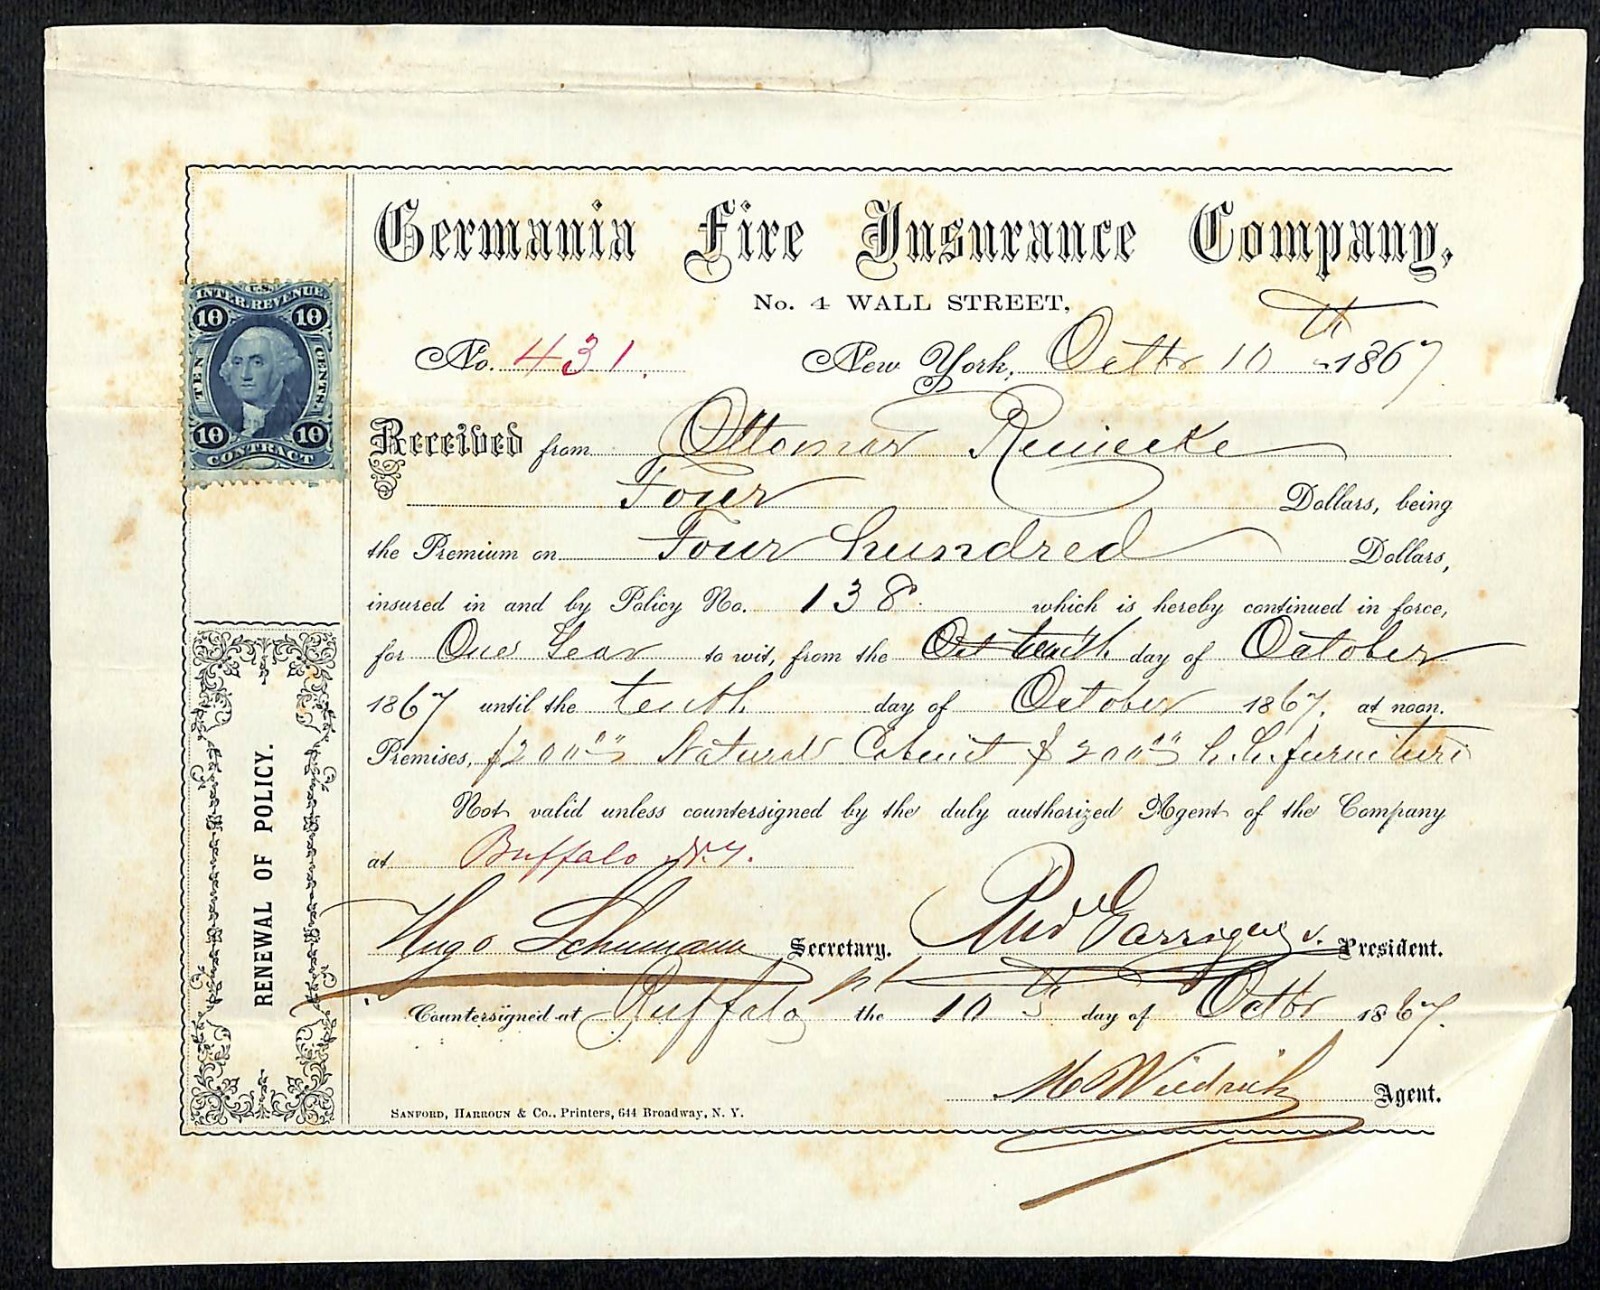 Germania Fire Insurance Company,
No. 4 WALL STREET,
No. 431. New York, Octbr 10th 1867
U.S.
INTER. REVENUE
10 10
TEN CENTS.
10 10
CONTRACT
Received from Ottomar Reinecke
Four Dollars, being
the Premium on Four hundred Dollars,
insured in and by Policy No. 138. which is hereby continued in force,
for One Year to wit, from the Oct tenth day of October
1867 until the tenth day of October 1867. at noon.
Premises, $200 Natural Cabinet $200 h.h. furniture
Not valid unless countersigned by the duly authorized Agent of the Company
at Buffalo N.Y.
Hugo Schumann Secretary. Rud Garrigue President.
pt
Countersigned at Buffalo the 10th day of Octbr 1867.
M Wiedrich Agent.
SANFORD, HARROUN & CO., Printers, 644 Broadway, N. Y.
RENEWAL OF POLICY.